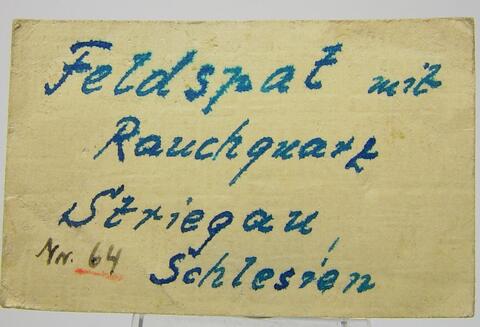 Feldspat mit
Rauchquarz
Striegau,
Nr. 64 Schlesien